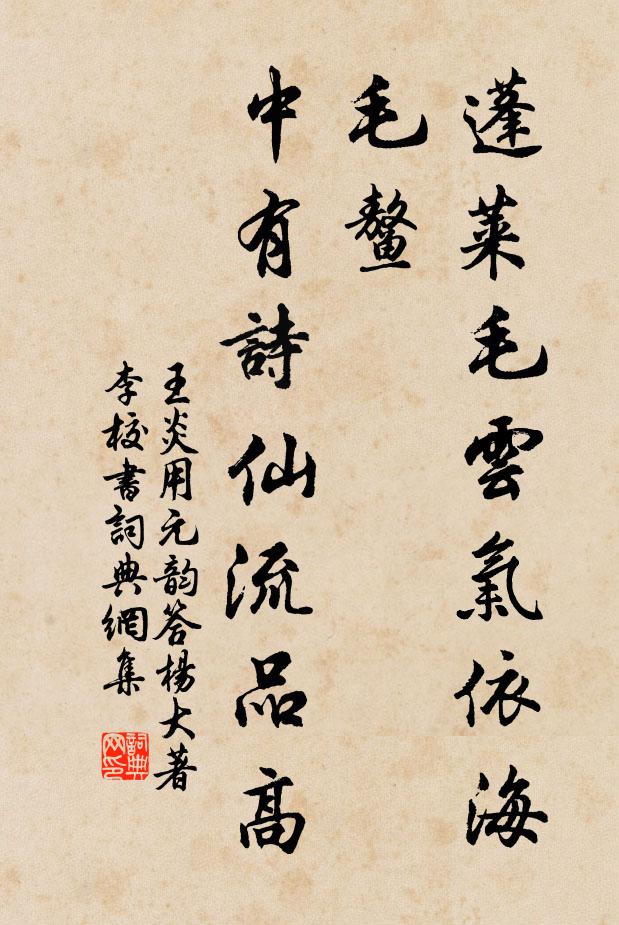 蓬萊毛雲氣依海
毛鰲
中有詩仙流品高
王炎用元韵答楊大著
李校書詞典網集
詞典網印